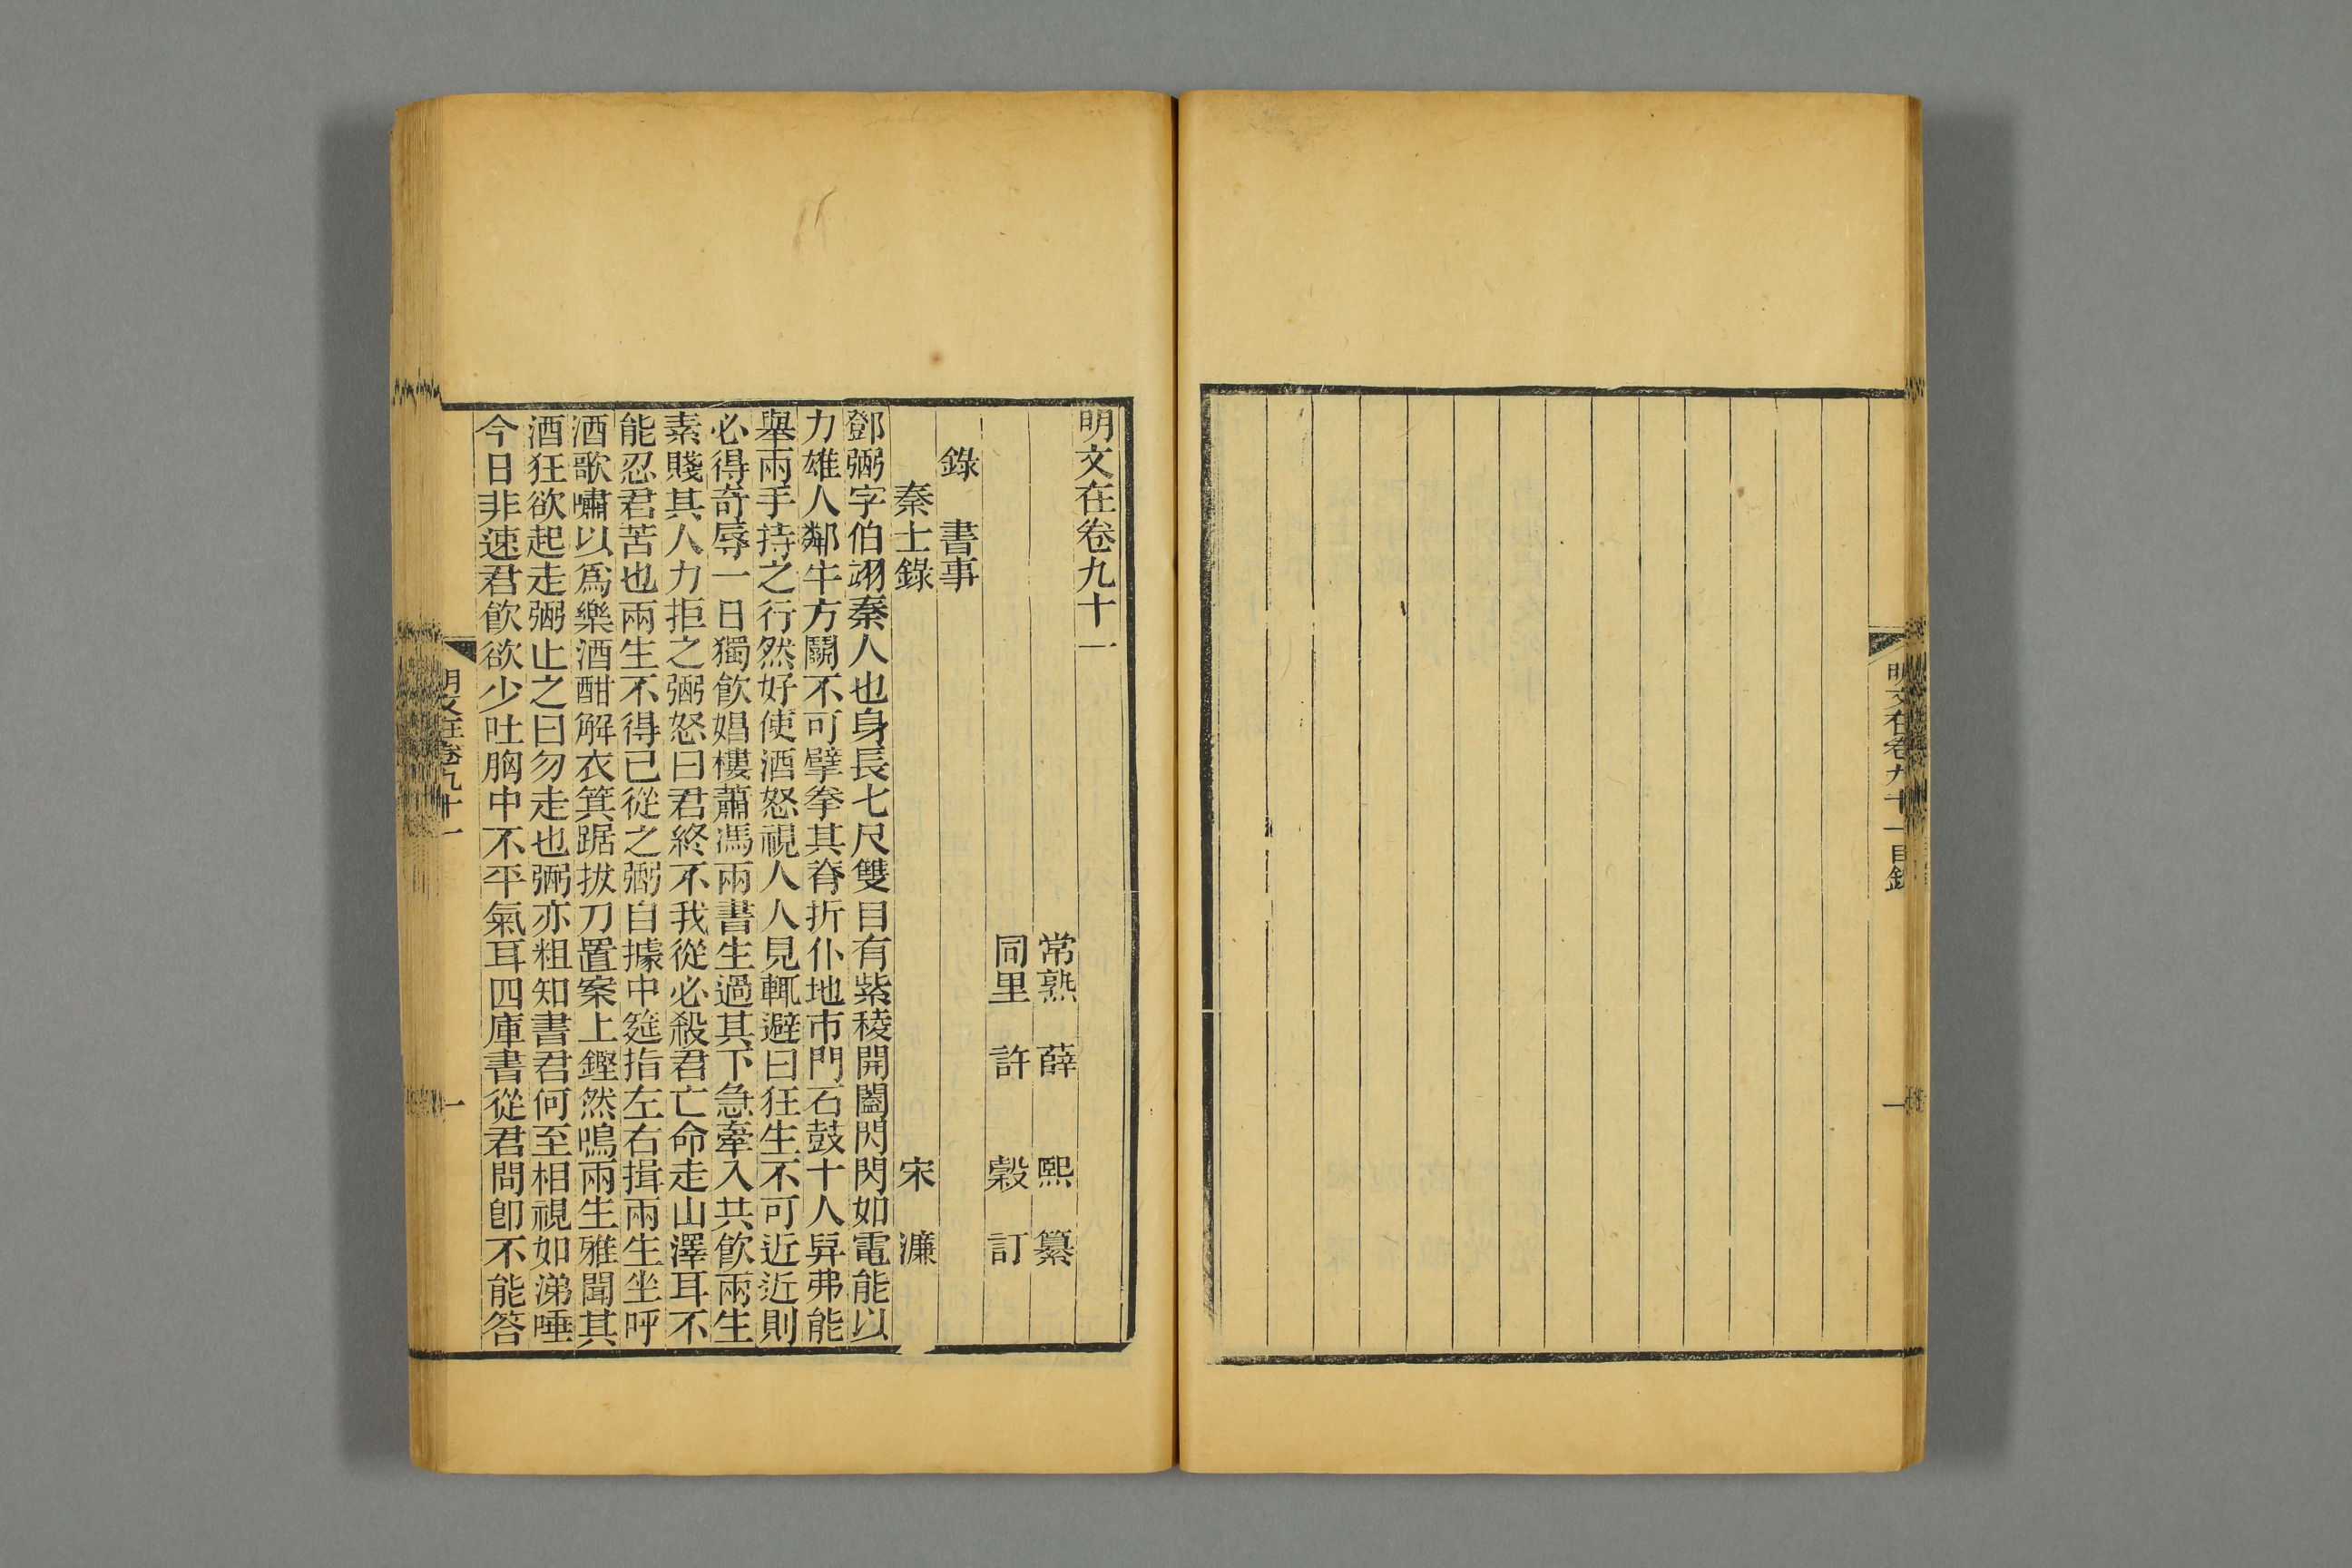 明文在卷九十一目錄
一
明文在卷九十一
常熟 薛 熙 纂
同里 許 穀 訂
錄 書事
秦士錄 宋 濂
鄧弼字伯翊秦人也身長七尺雙目有紫稜開闔閃閃如電能以
力雄人鄰牛方鬬不可擘拳其脊折仆地市門石鼓十人舁弗能
舉兩手持之行然好使酒怒視人人見輒避曰狂生不可近近則
必得奇辱一日獨飮娼樓蕭馮兩書生過其下急牽入共飮兩生
素賤其人力拒之弼怒曰君終不我從必殺君亡命走山澤耳不
能忍君苦也兩生不得已從之弼自據中筵指左右揖兩生坐呼
酒歌嘯以爲樂酒酣解衣箕踞拔刀置案上鏗然鳴兩生雅聞其
酒狂欲起走弼止之曰勿走也弼亦粗知書君何至相視如涕唾
今日非速君飮欲少吐胸中不平氣耳四庫書從君問卽不能答
明文在卷九十一
一